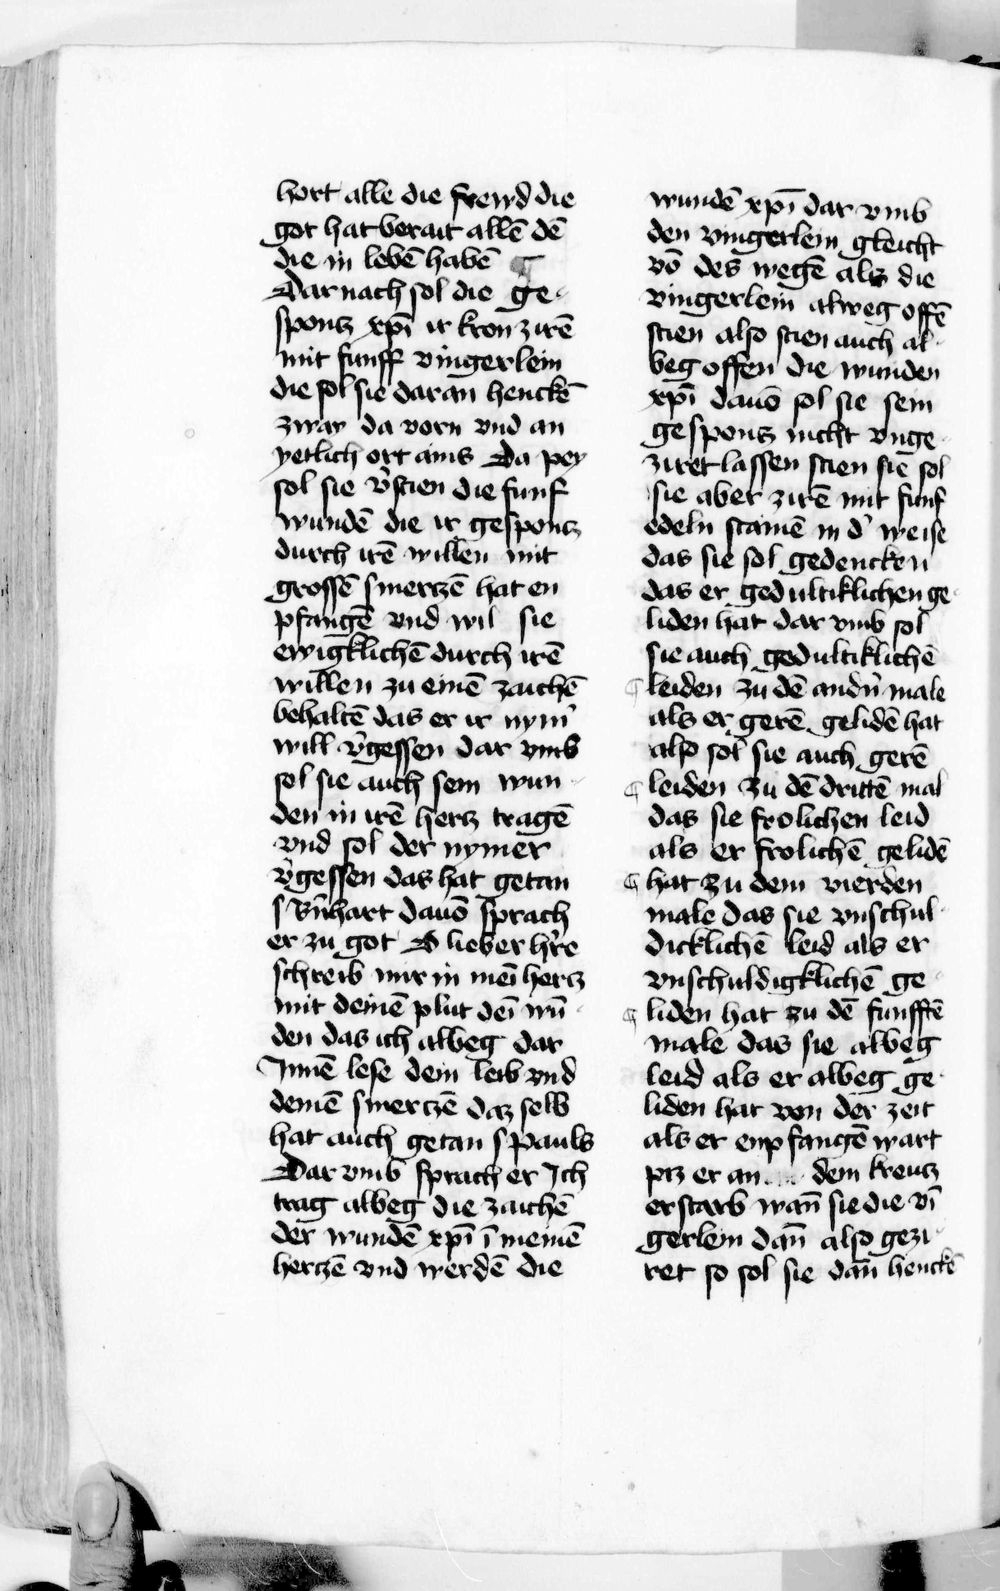 hort alle die frewd die
got hat berait allē dē
die in lebē habē ¶
Dar nach sol die ge-
sponcz xp̄i ir kron zirē
mit funff vingerlein
die sol sie daran henckē
zway da vorn vnd an
yetlich ort ains Da pey
sol sie v̓sten die funf
wundē die ir gesponcz
durch irē willen mit
grossē smerczē hat en
pfangē vnd wil sie
ewigklichē durch irē
willen zu einē zaichē
behaltē das er ir nym̓
will v̓gessen dar vmb
sol sie auch sein wun-
den in irē hertz tragē
vnd sol der nymer
v̓gessen das hat getan
s Bn̄hart dauō sprach
er zu got O lieber hr̄e
schreib mir in mei hercz
mit deinē plut dei wū-
den das ich albeg dar
Innē lese dein leib vnd
deinē smerczē daz selb
hat auch getan s pauls
Dar vmb sprach er Ich
trag albeg die zaichē
der wundē xp̄i ī meinē
herczē vnd werdē die
wundē xp̄i dar vmb
den vingerlein gleicht
vō des wegē als die
vingerlein alweg offē
sten also sten auch al-
beg offen die wunden
xp̄i dauō sol sie sein
gesponcz nicht vnge-
ziret lassen sten sie sol
sie aber zirē mit funf
edeln stainē in d̓ weise
das sie sol gedencken
das er gedultiklichen ge-
liden hat dar vmb sol
sie auch gedultiklichē
¶ leiden zu dē andn̓ male
als er gerē gelidē hat
also sol sie auch gerē
¶ leiden zu dē drittē mal
das sie frolichen leid
als er frolichē gelidē
¶ hat zu dem vierden
male das sie vnschul-
dicklichē leid als er
vnschuldigklichē ge-
¶ liden hat zu dē funfftē
male das sie albeg
leid als er albeg ge-
liden hat von der zeit
als er enpfangē wart
pcz er an dem kreucz
erstarb wan̄ sie die vī
gerlein dan̄ also gezi-
ret so sol sie dan̄ henckē